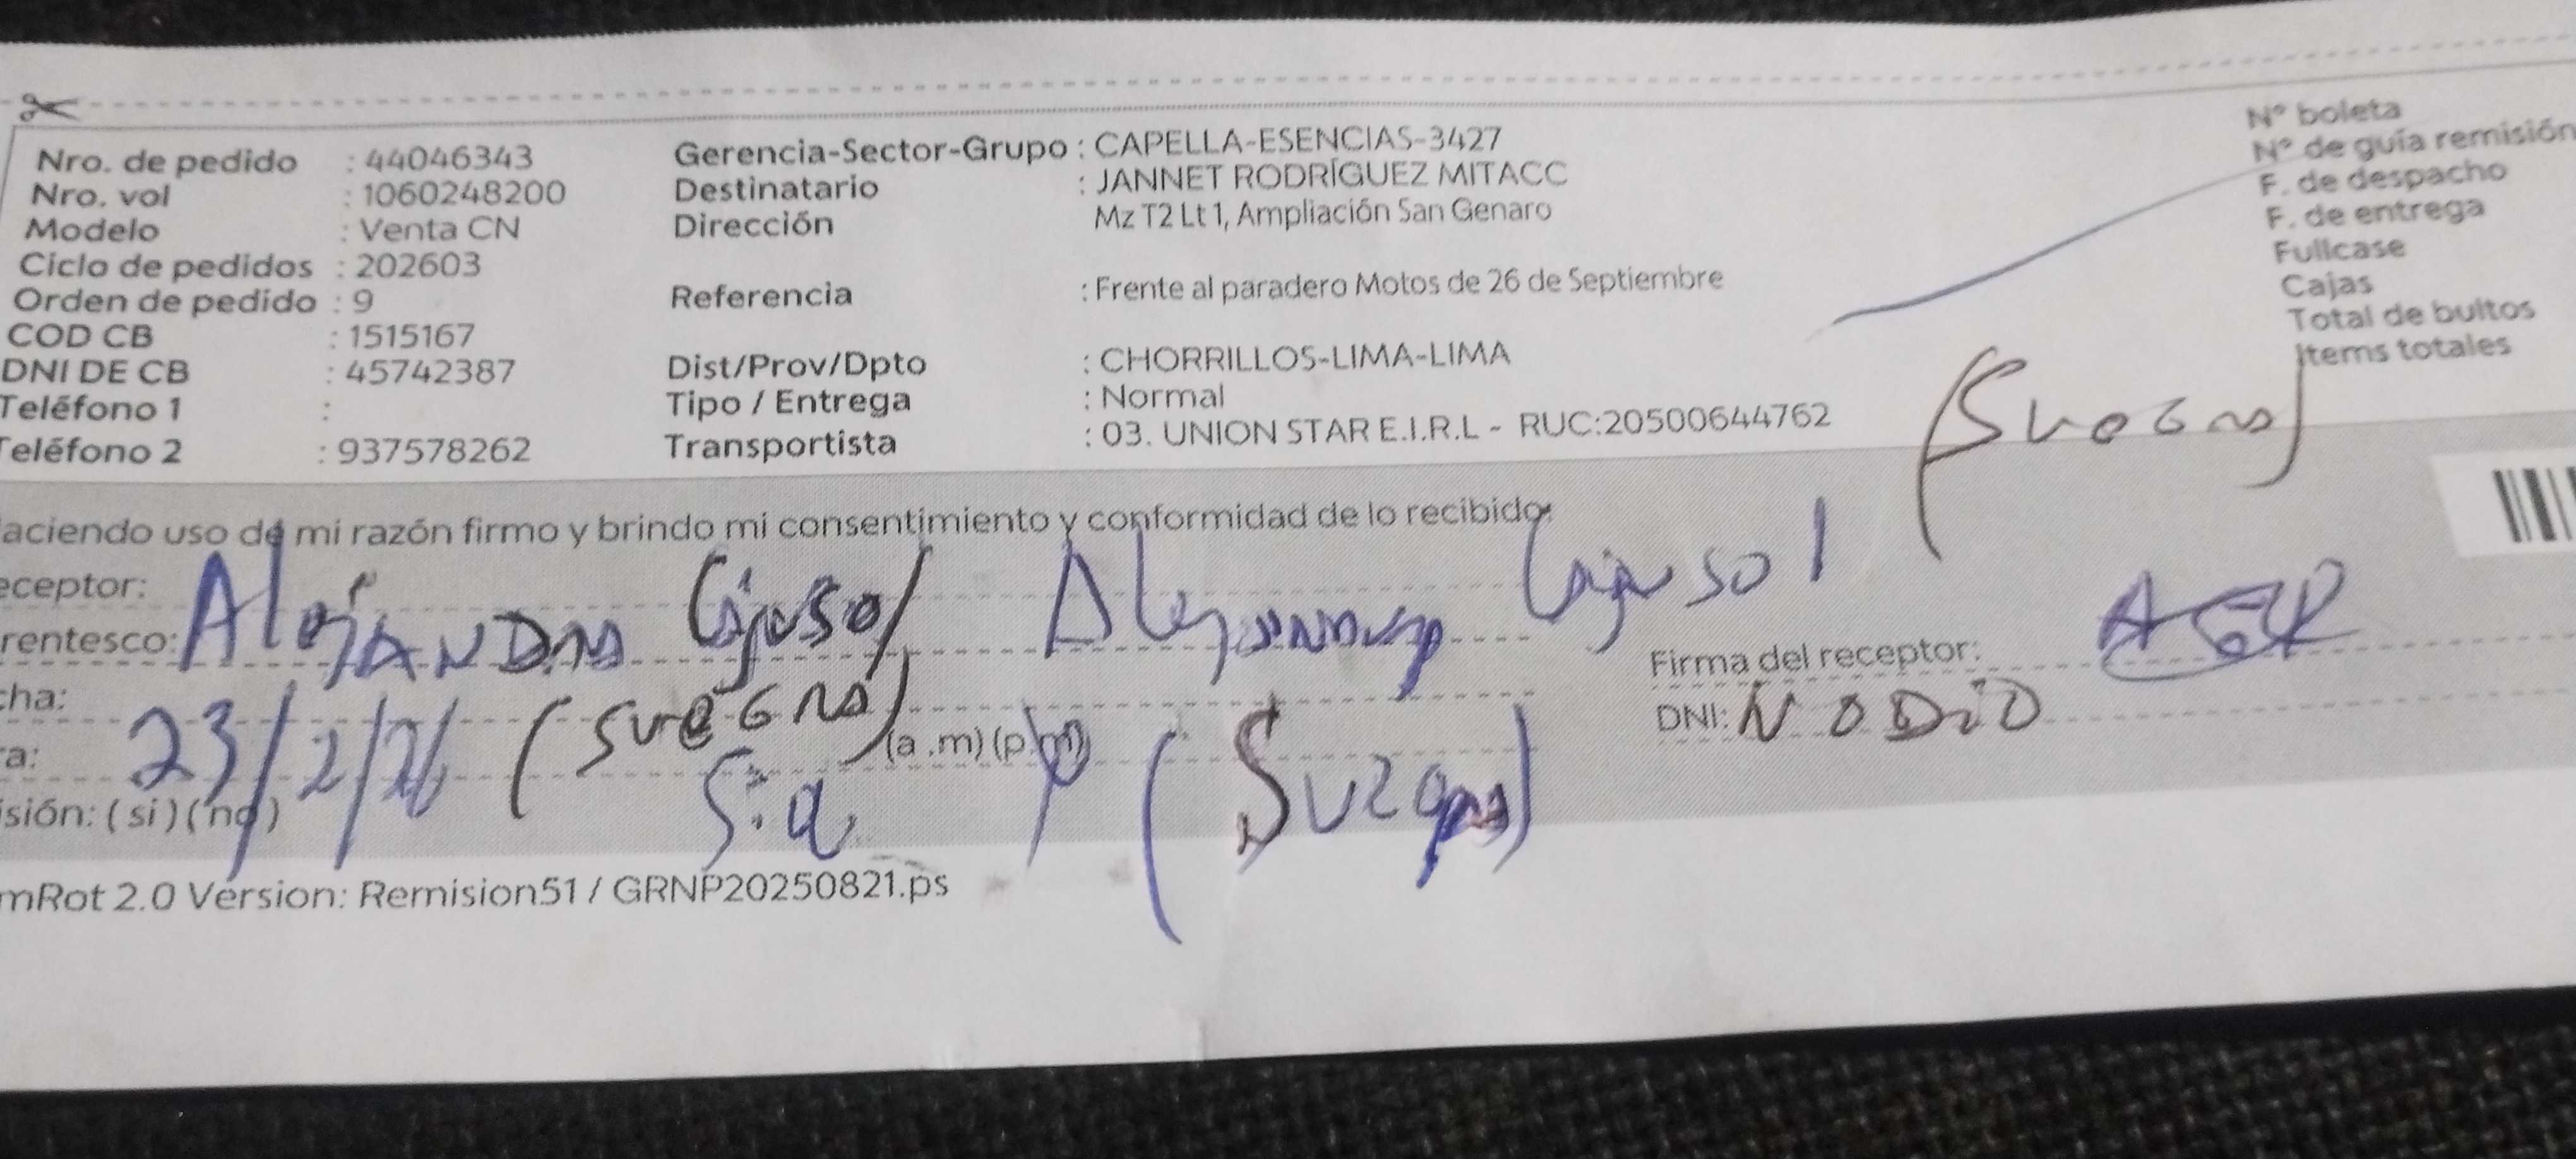 Nro. de pedido : 44046343
Nro. vol : 1060248200
Modelo : Venta CN
Ciclo de pedidos : 202603
Orden de pedido : 9
COD CB : 1515167
DNI DE CB : 45742387
Teléfono 1 :
eléfono 2 : 937578262
Gerencia-Sector-Grupo : CAPELLA-ESENCIAS-3427
Destinatario : JANNET RODRÍGUEZ MITACC
Dirección Mz T2 Lt 1, Ampliación San Genaro
Referencia : Frente al paradero Motos de 26 de Septiembre
Dist/Prov/Dpto : CHORRILLOS-LIMA-LIMA
Tipo / Entrega : Normal
Transportista : 03. UNION STAR E.I.R.L - RUC:20500644762
N° boleta
N° de guía remisión
F. de despacho
F. de entrega
Fullcase
Cajas
Total de bultos
Items totales
(Suegra)
aciendo uso de mi razón firmo y brindo mi consentimiento y conformidad de lo recibido:
eceptor:
rentesco: Alejandra
cha: 23/2/26 (suegra)
ra: (a .m) (p.m)
isión: ( si ) ( no )
Firma del receptor:
DNI: NO DIO
mRot 2.0 Version: Remision51 / GRNP20250821.ps